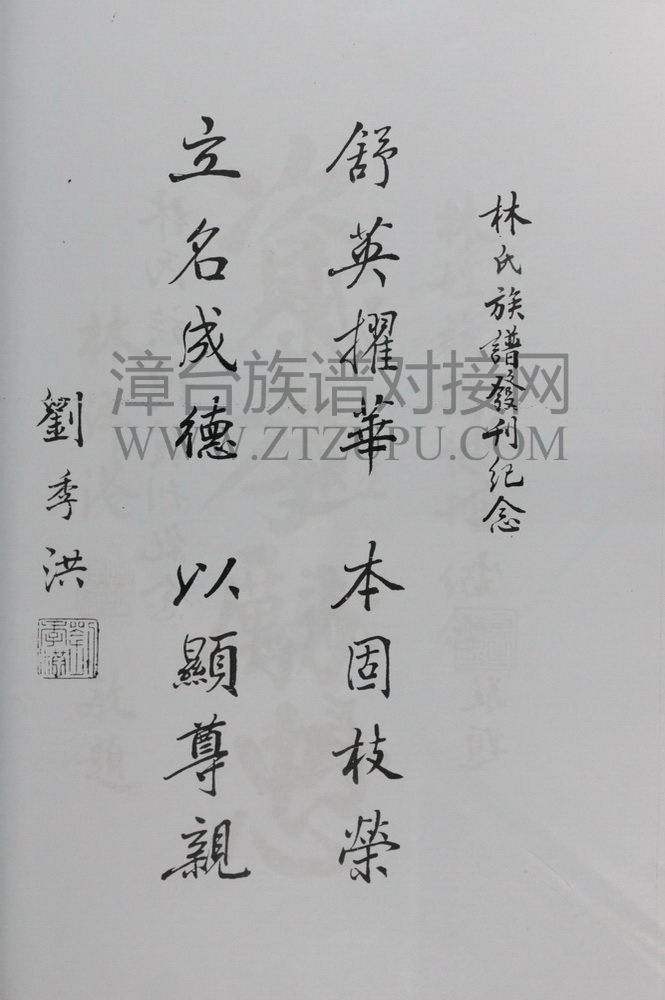 林氏族譜發刊纪念
舒英擢華 本固枝榮
立名成德 以顯尊親
劉季洪
漳台族谱对接网
WWW.ZTZUPU.COM